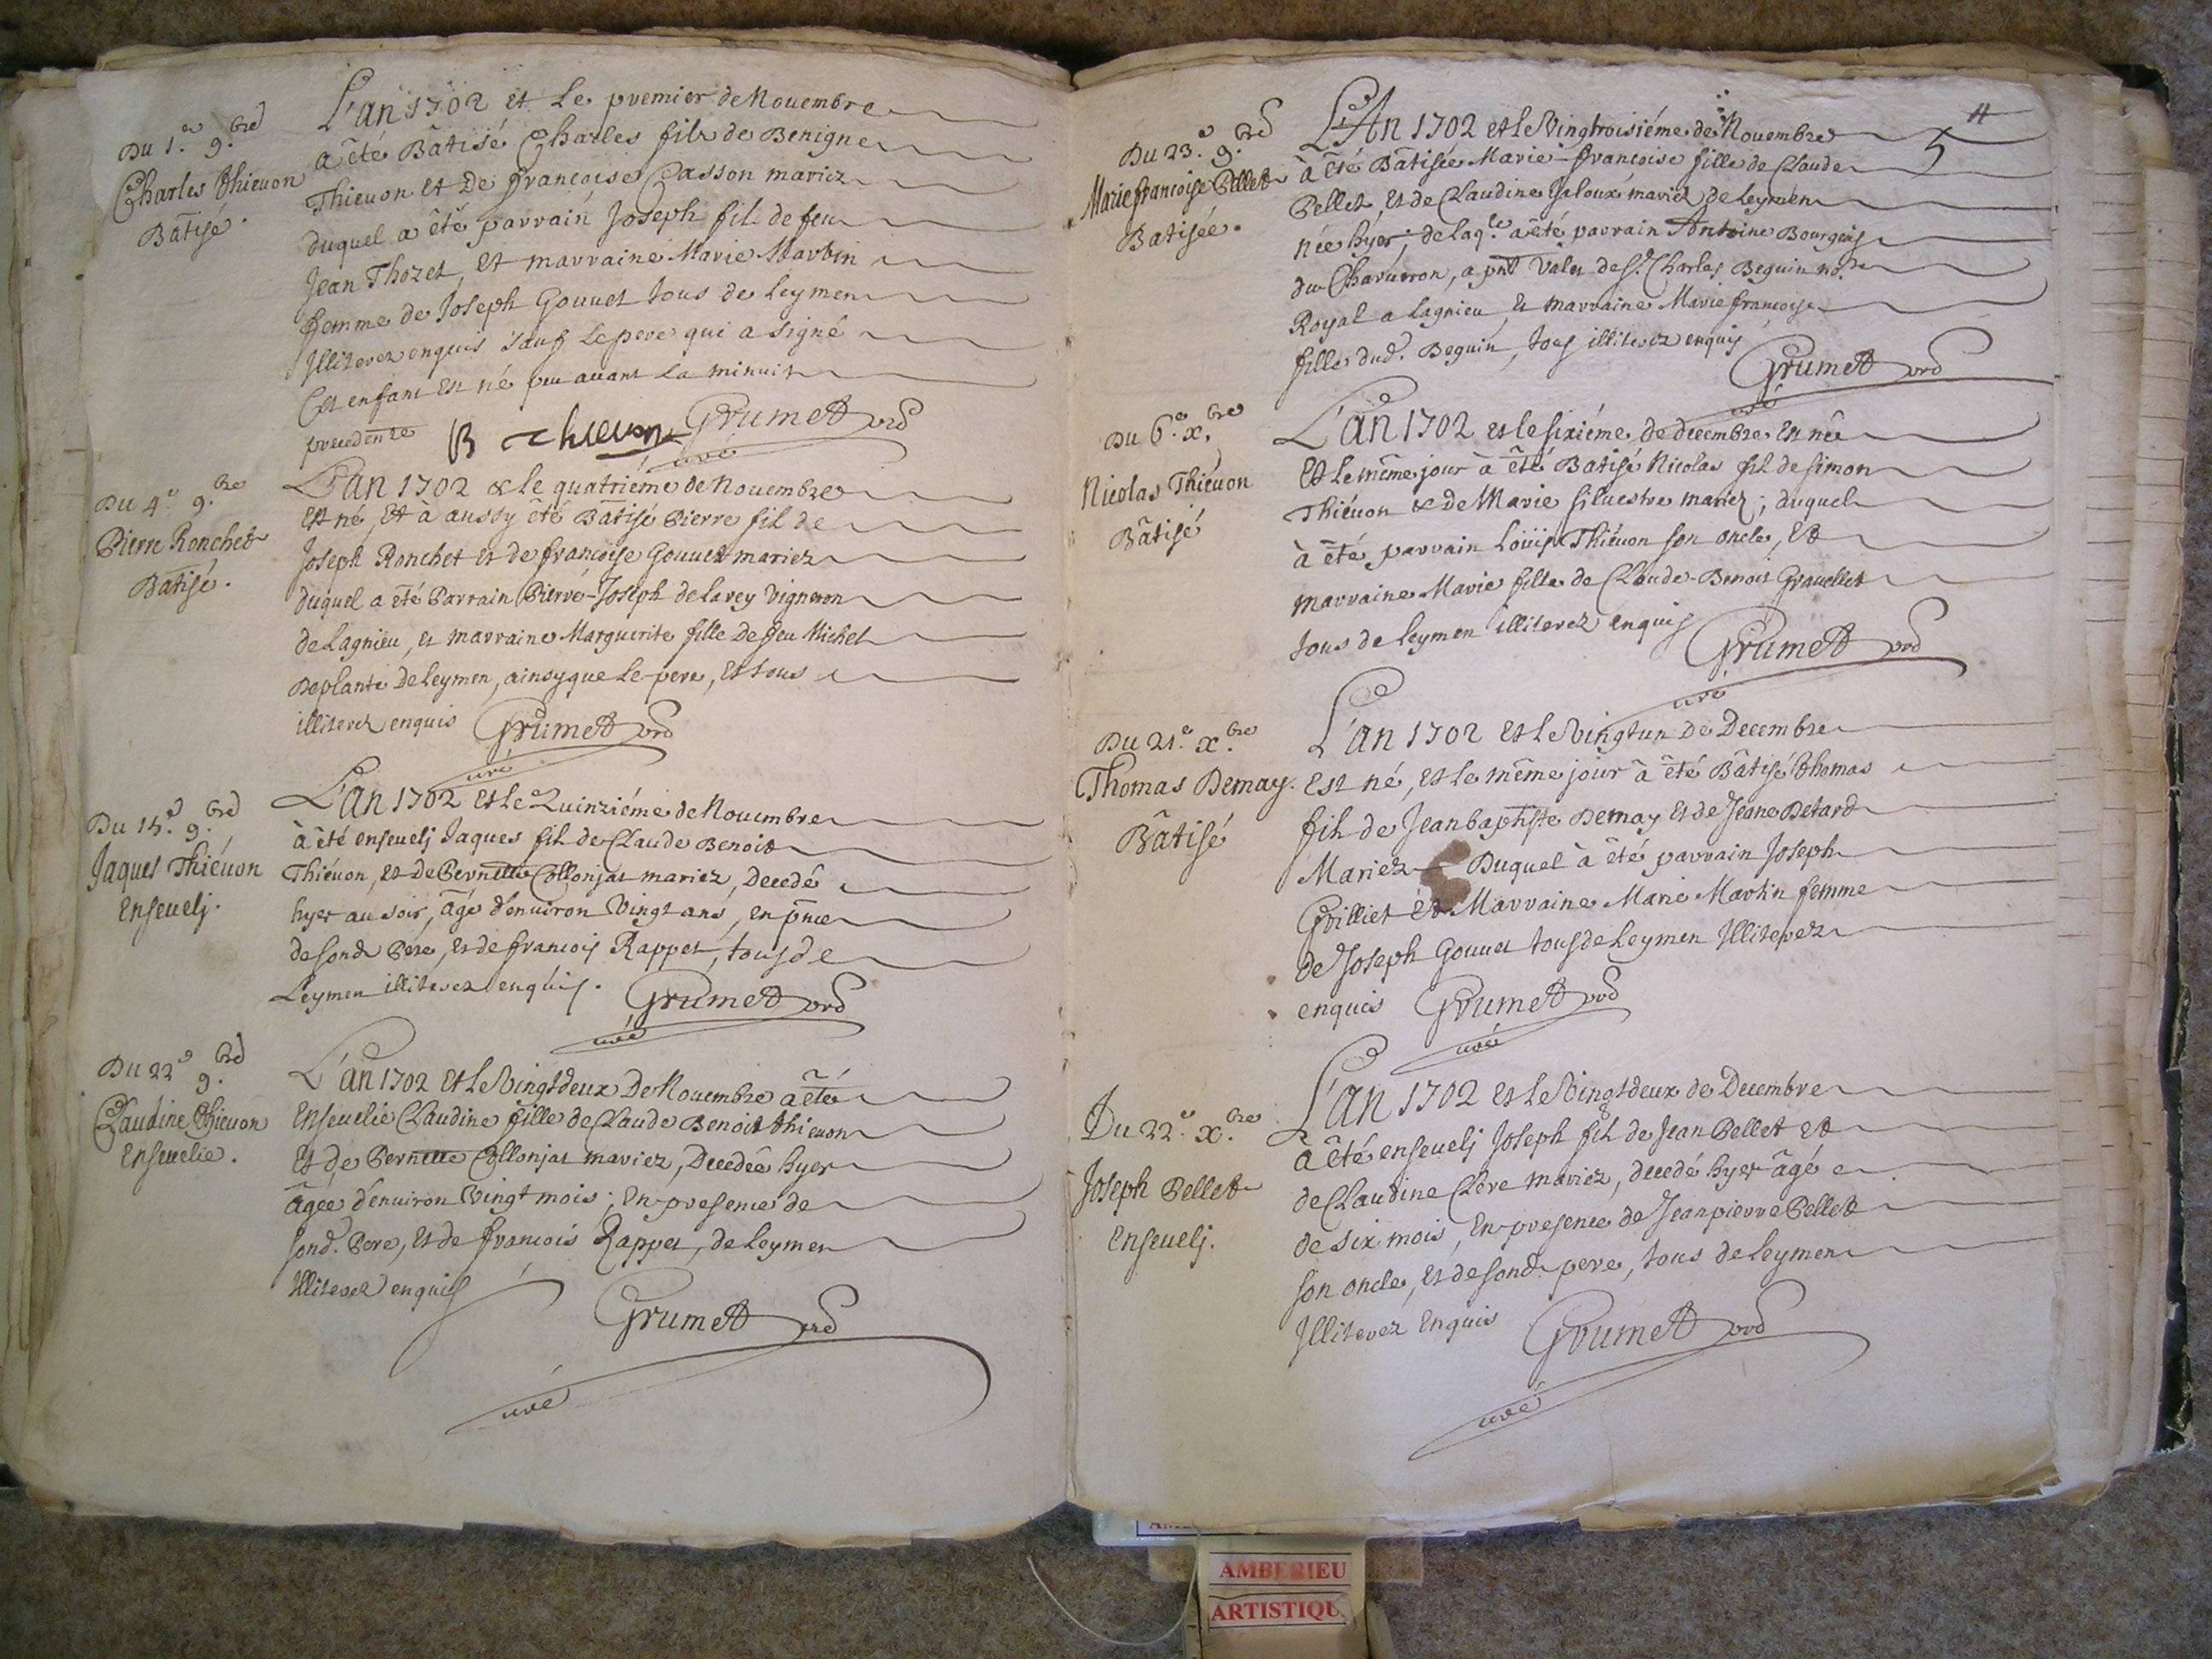 Du 1.er 9.bre
Charles Thieuon
Bâtisé.
L'an 1702 et Le premier de Nouembre
a êté Bâtisé Charles fils de Benigne
Thieuon et De françoise Casson mariez
duquel a êté parrain Joseph fils de feu
Jean Thozet, Et marraine Marie Martin
femme de Joseph Gouuet tous de Leymen
Illiterez enquis sauf Le pere qui a signé
Cet enfant Est né peu auant La minuit
precedente B thieuon Grumet
curé
Du 4.e 9.bre
Pierre Ronchet
Batisé.
L'an 1702 & Le quatriéme de Nouembre
Est né, Et à aussy êté Bâtisé Pierre fils de
Joseph Ronchet et de françoise Gouuet mariez
duquel a êté Parrain Pierre-Joseph de Larey Vigneron
de Lagnieu, et marraine Marguerite fille De feu Michel
Deplante De Leymen, ainsy que Le pere, Et tous
illiterez enquis Grumet
curé
Du 15.e 9.bre
Jaques Thiéuon
Enseuelj.
L'an 1702 Et Le Quinziéme de Nouembre
à êté enseuelj Jaques fils de Claude Benoit
Thiéuon, et De Bernette Collonjat mariez, Decedé
hyer au soir, âgé d'enuiron Vingt ans, en pnce
de sond. Pere, et de francois Rappet, tous de
Leymen illiterez enquis. Grumet
curé
Du 22e 9.bre
Claudine Thieuon
Enseuelie.
L'an 1702 Et Le Vingtdeux De Nouembre a êté
Enseuelie Claudine fille de Claude Benoit thieuon
Et de Bernette Collonjat mariez, Decedée hyer
âgée d'enuiron Vingt mois; En presence de
sond. Pere, Et de francois Rappet, de Leymen
Illiterez enquis
Grumet
curé
11
5
Du 23.e 9.bre
Marie francoise Pellet
Batisée.
L'An 1702 et Le Vingtroisiéme de Nouembre
à êté Bâtisée Marie-francoise fille de Claude
Pellet, Et de Claudine Jaloux mariez de Leymen
née hyer; de laq.le a êté parrain Antoine Bourgeois
du, a pnt Valet de S.r Charles Beguin
Royal a Lagnieu, et marraine Marie francoise
fille dud. Beguin, tous illiterez enquis
Grumet
curé
Du 6.e x.bre
Nicolas Thiéuon
Bâtisé
L'an 1702 et le sixiéme de decembre Est né
Et Le même jour à êté Batisé Nicolas fils de Simon
Thiéuon & de Marie Siluestre mariez; duquel
à êté parrain Loüis Thiéuon son oncle, Et
marraine Marie fille de Claude-Benoit Grauellet
tous de Leymen illiterez enquis
Grumet
curé
Du 21.e x.bre
Thomas Demay.
Bâtisé
L'an 1702 Et Le Vingtun De Decembre
Est né, Et Le même jour à êté Bâtisé thomas
fils de Jean baptiste Demay Et de Jeane Betard
Mariez Duquel à êté parrain Joseph
Grilliet Et Marraine Marie Martin femme
de Joseph Gouuet tous de Leymen Illiterez
enquis Grumet
curé
Du 22.e x.bre
Joseph Pellet
Enseuelj.
L'an 1702 Et Le Vingtdeux de Decembre
à êté enseuelj Joseph fils de Jean Pellet Et
de Claudine Clere mariez, decedé hyer âgé
de six mois, En presence de Jean pierre Pellet
son oncle, Et de sond. pere, tous de Leymen
Illiterez Enquis Grumet
curé
AMBERIEU
ARTISTIQU